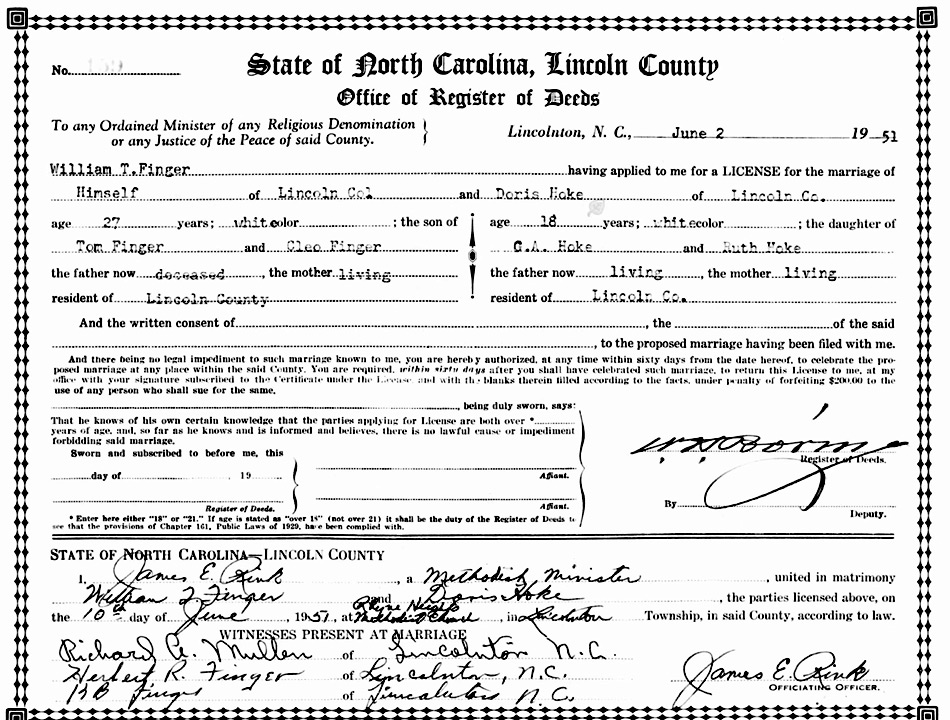 No. 159
State of North Carolina, Lincoln County
Office of Register of Deeds
To any Ordained Minister of any Religious Denomination
or any Justice of the Peace of said County.
Lincolnton, N. C., June 2 19 51
William T.Finger having applied to me for a LICENSE for the marriage of
Himself of Lincoln Col and Doris Hoke of Lincoln Co.
age 27 years; white color ; the son of
age 18 years; white color ; the daughter of
Tom Finger and Cleo Finger
C.A. Hoke and Ruth Hoke
the father now deceased , the mother living
the father now living , the mother living
resident of Lincoln County
resident of Lincoln Co.
And the written consent of , the of the said
, to the proposed marriage having been filed with me.
And there being no legal impediment to such marriage known to me, you are hereby authorized, at any time within sixty days from the date hereof, to celebrate the pro-
posed marriage at any place within the said County. You are required, within sixty days after you shall have celebrated such marriage, to return this License to me, at my
office with your signature subscribed to the Certificate under the License, and with the blanks therein filled according to the facts, under penalty of forfeiting $200.00 to the
use of any person who shall sue for the same.
, being duly sworn, says:
That he knows of his own certain knowledge that the parties applying for License are both over *
years of age, and, so far as he knows and is informed and believes, there is no lawful cause or impediment
forbidding said marriage.
Sworn and subscribed to before me, this
day of , 19
Affiant.
Register of Deeds.
Affiant.
* Enter here either "18" or "21." If age is stated as "over 18" (not over 21) it shall be the duty of the Register of Deeds to
see that the provisions of Chapter 161, Public Laws of 1929, have been complied with.
Register of Deeds.
By
Deputy.
STATE OF NORTH CAROLINA—LINCOLN COUNTY
I, James E. Rink , a Methodist Minister , united in matrimony
William T Finger and Doris Hoke , the parties licensed above, on
the 10th day of June , 1951, at Rhyne Heights Methodist Church , in Lincolnton Township, in said County, according to law.
WITNESSES PRESENT AT MARRIAGE
Richard A. Mullen of Lincolnton N.C.
Herbert R. Finger of Lincolnton, N.C.
Finger of Lincolnton N.C.
James E. Rink
OFFICIATING OFFICER.